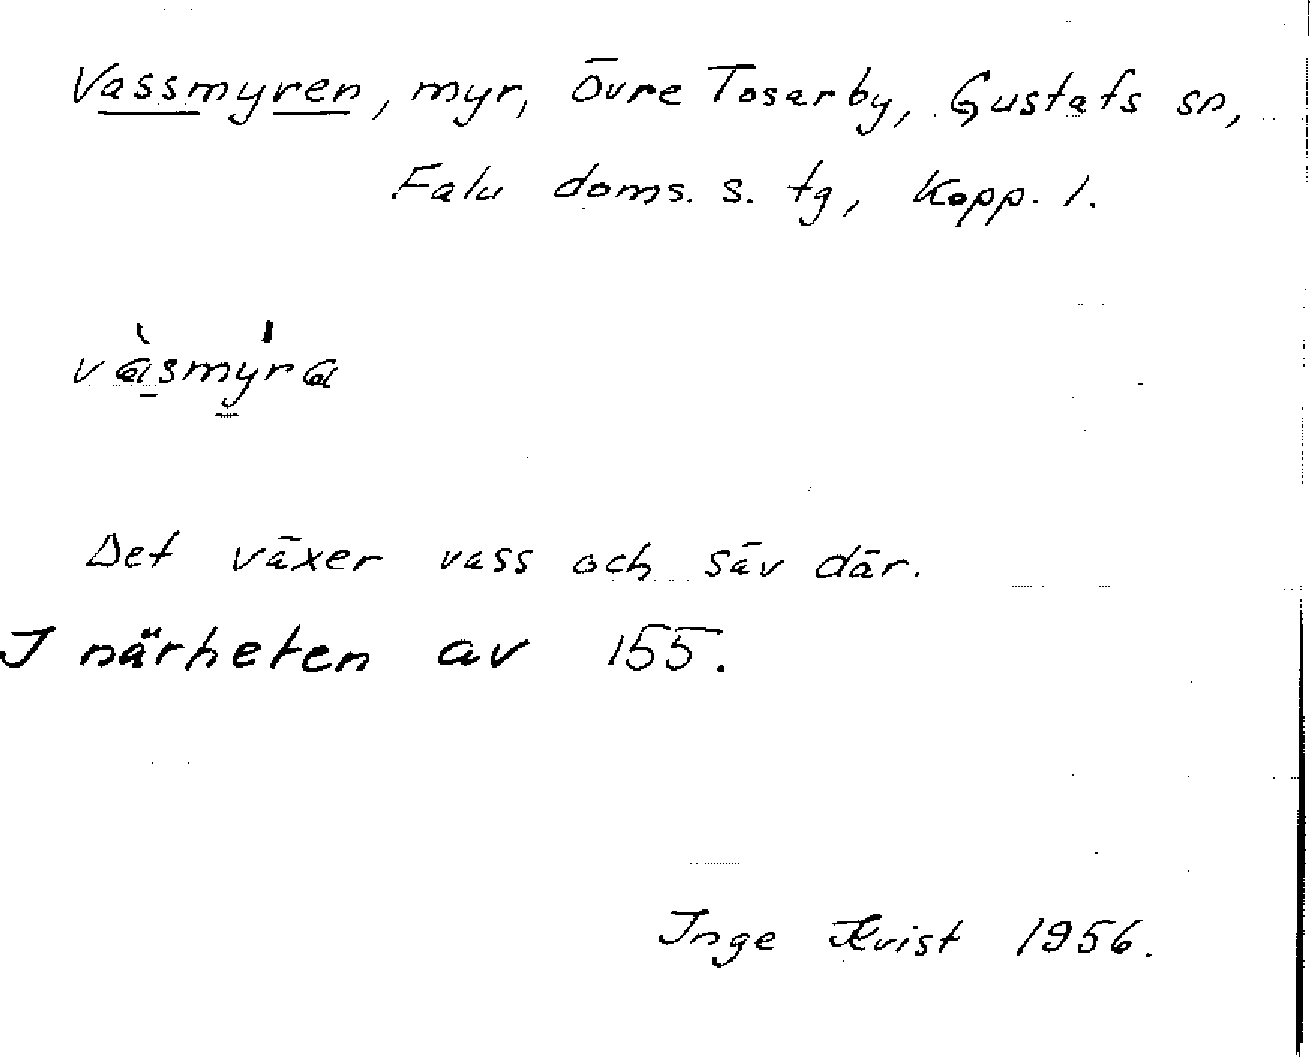 Vassmyren, myr, Övre Tosarby, Gustafs sn,
Falu doms. s. tg, Kopp. l.
vàsmýra
Det växer vass och säv där.
I närheten av 155.
Inge Kvist 1956.